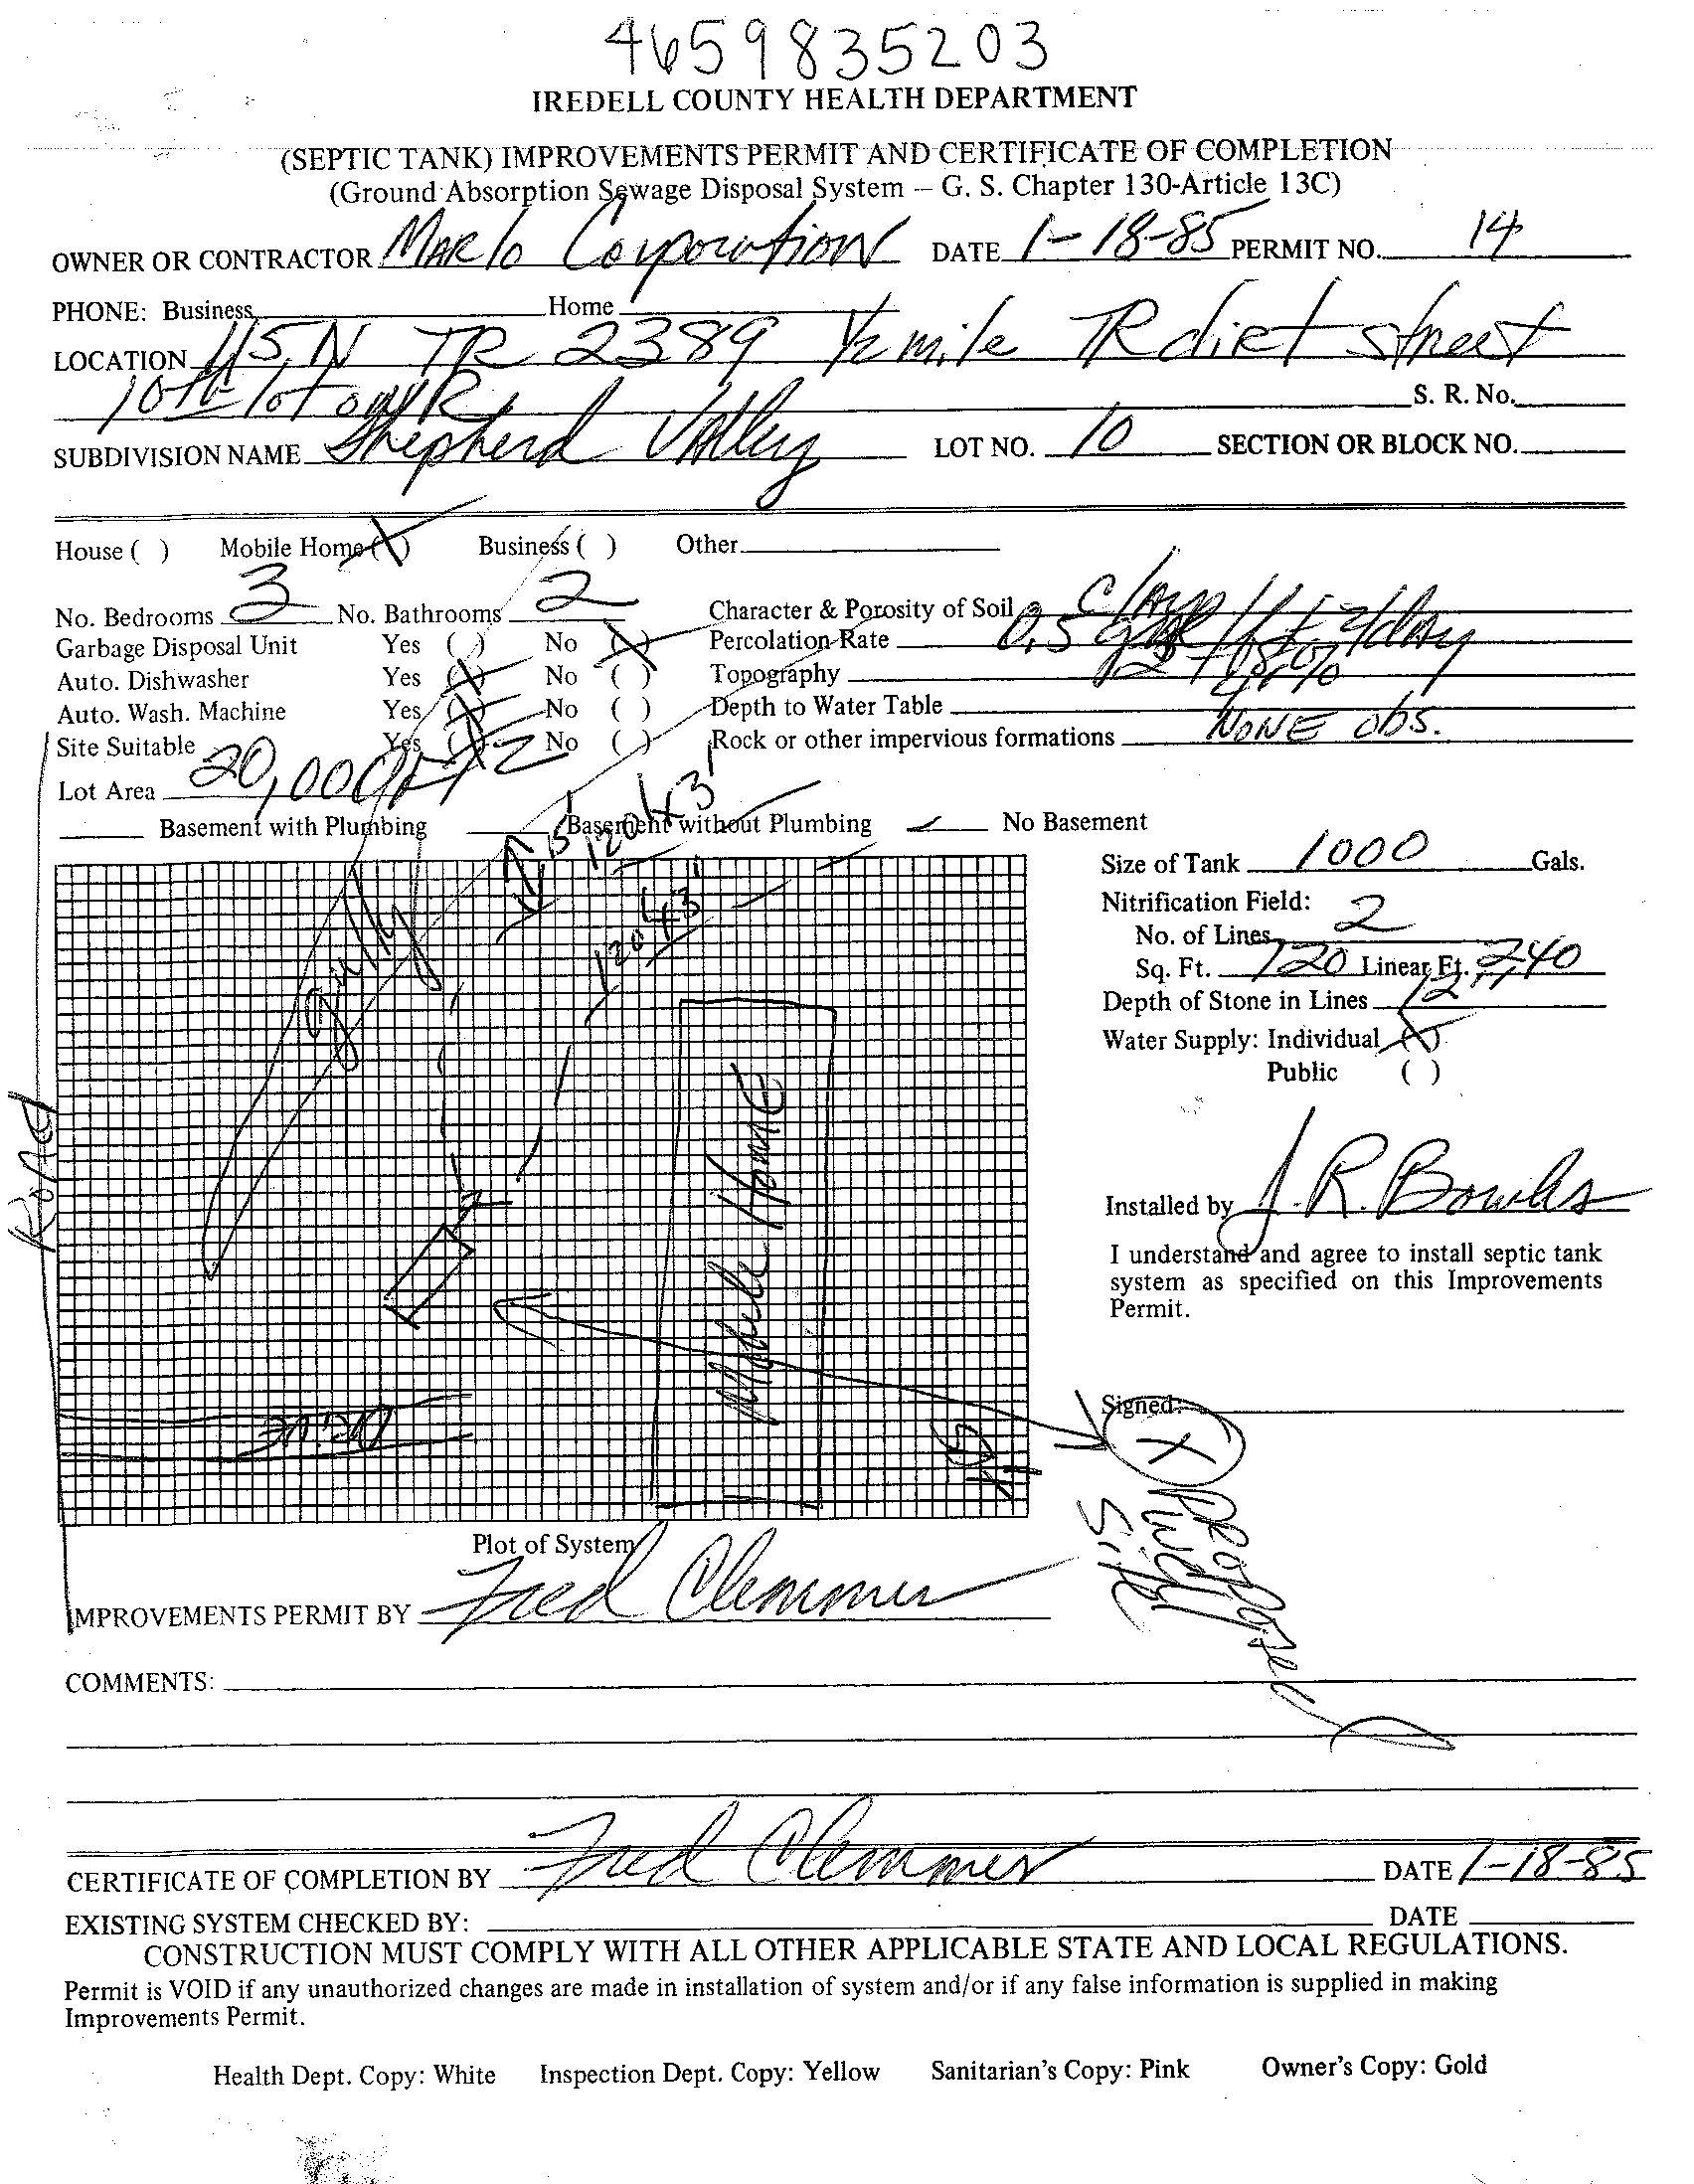 4659835203
IREDELL COUNTY HEALTH DEPARTMENT
(SEPTIC TANK) IMPROVEMENTS PERMIT AND CERTIFICATE OF COMPLETION
(Ground Absorption Sewage Disposal System – G. S. Chapter 130-Article 13C)
OWNER OR CONTRACTOR Marlo Corporation DATE 1-18-85 PERMIT NO. 14
PHONE: Business Home
LOCATION 115 N TR 2389 1/2 mile TR dirt street
10th lot on R S. R. No.
SUBDIVISION NAME Shepherd Valley LOT NO. 10 SECTION OR BLOCK NO.
House ( ) Mobile Home (X) Business ( ) Other
No. Bedrooms 3 No. Bathrooms 2 Character & Porosity of Soil clay
Garbage Disposal Unit Yes ( ) No (X) Percolation Rate 0.5 /ft2/day
Auto. Dishwasher Yes (X) No ( ) Topography
Auto. Wash. Machine Yes (X) No ( ) Depth to Water Table
Site Suitable Yes (X) No ( ) Rock or other impervious formations NONE obs.
Lot Area 20,000 Ft2
Basement with Plumbing Basement without Plumbing ✓ No Basement
120 x 3'
120 x 3'
gully
Road
Mobile Home
Drive
Size of Tank 1000 Gals.
Nitrification Field:
No. of Lines 2
Sq. Ft. 720 Linear Ft. 240
Depth of Stone in Lines 12"
Water Supply: Individual (X)
Public ( )
Installed by J. R. Bowles
I understand and agree to install septic tank
system as specified on this Improvements
Permit.
Signed:
X
proposed
well
site
Plot of System
IMPROVEMENTS PERMIT BY Fred Clemmer
COMMENTS:
CERTIFICATE OF COMPLETION BY Fred Clemmer DATE 1-18-85
EXISTING SYSTEM CHECKED BY: DATE
CONSTRUCTION MUST COMPLY WITH ALL OTHER APPLICABLE STATE AND LOCAL REGULATIONS.
Permit is VOID if any unauthorized changes are made in installation of system and/or if any false information is supplied in making
Improvements Permit.
Health Dept. Copy: White Inspection Dept. Copy: Yellow Sanitarian's Copy: Pink Owner's Copy: Gold